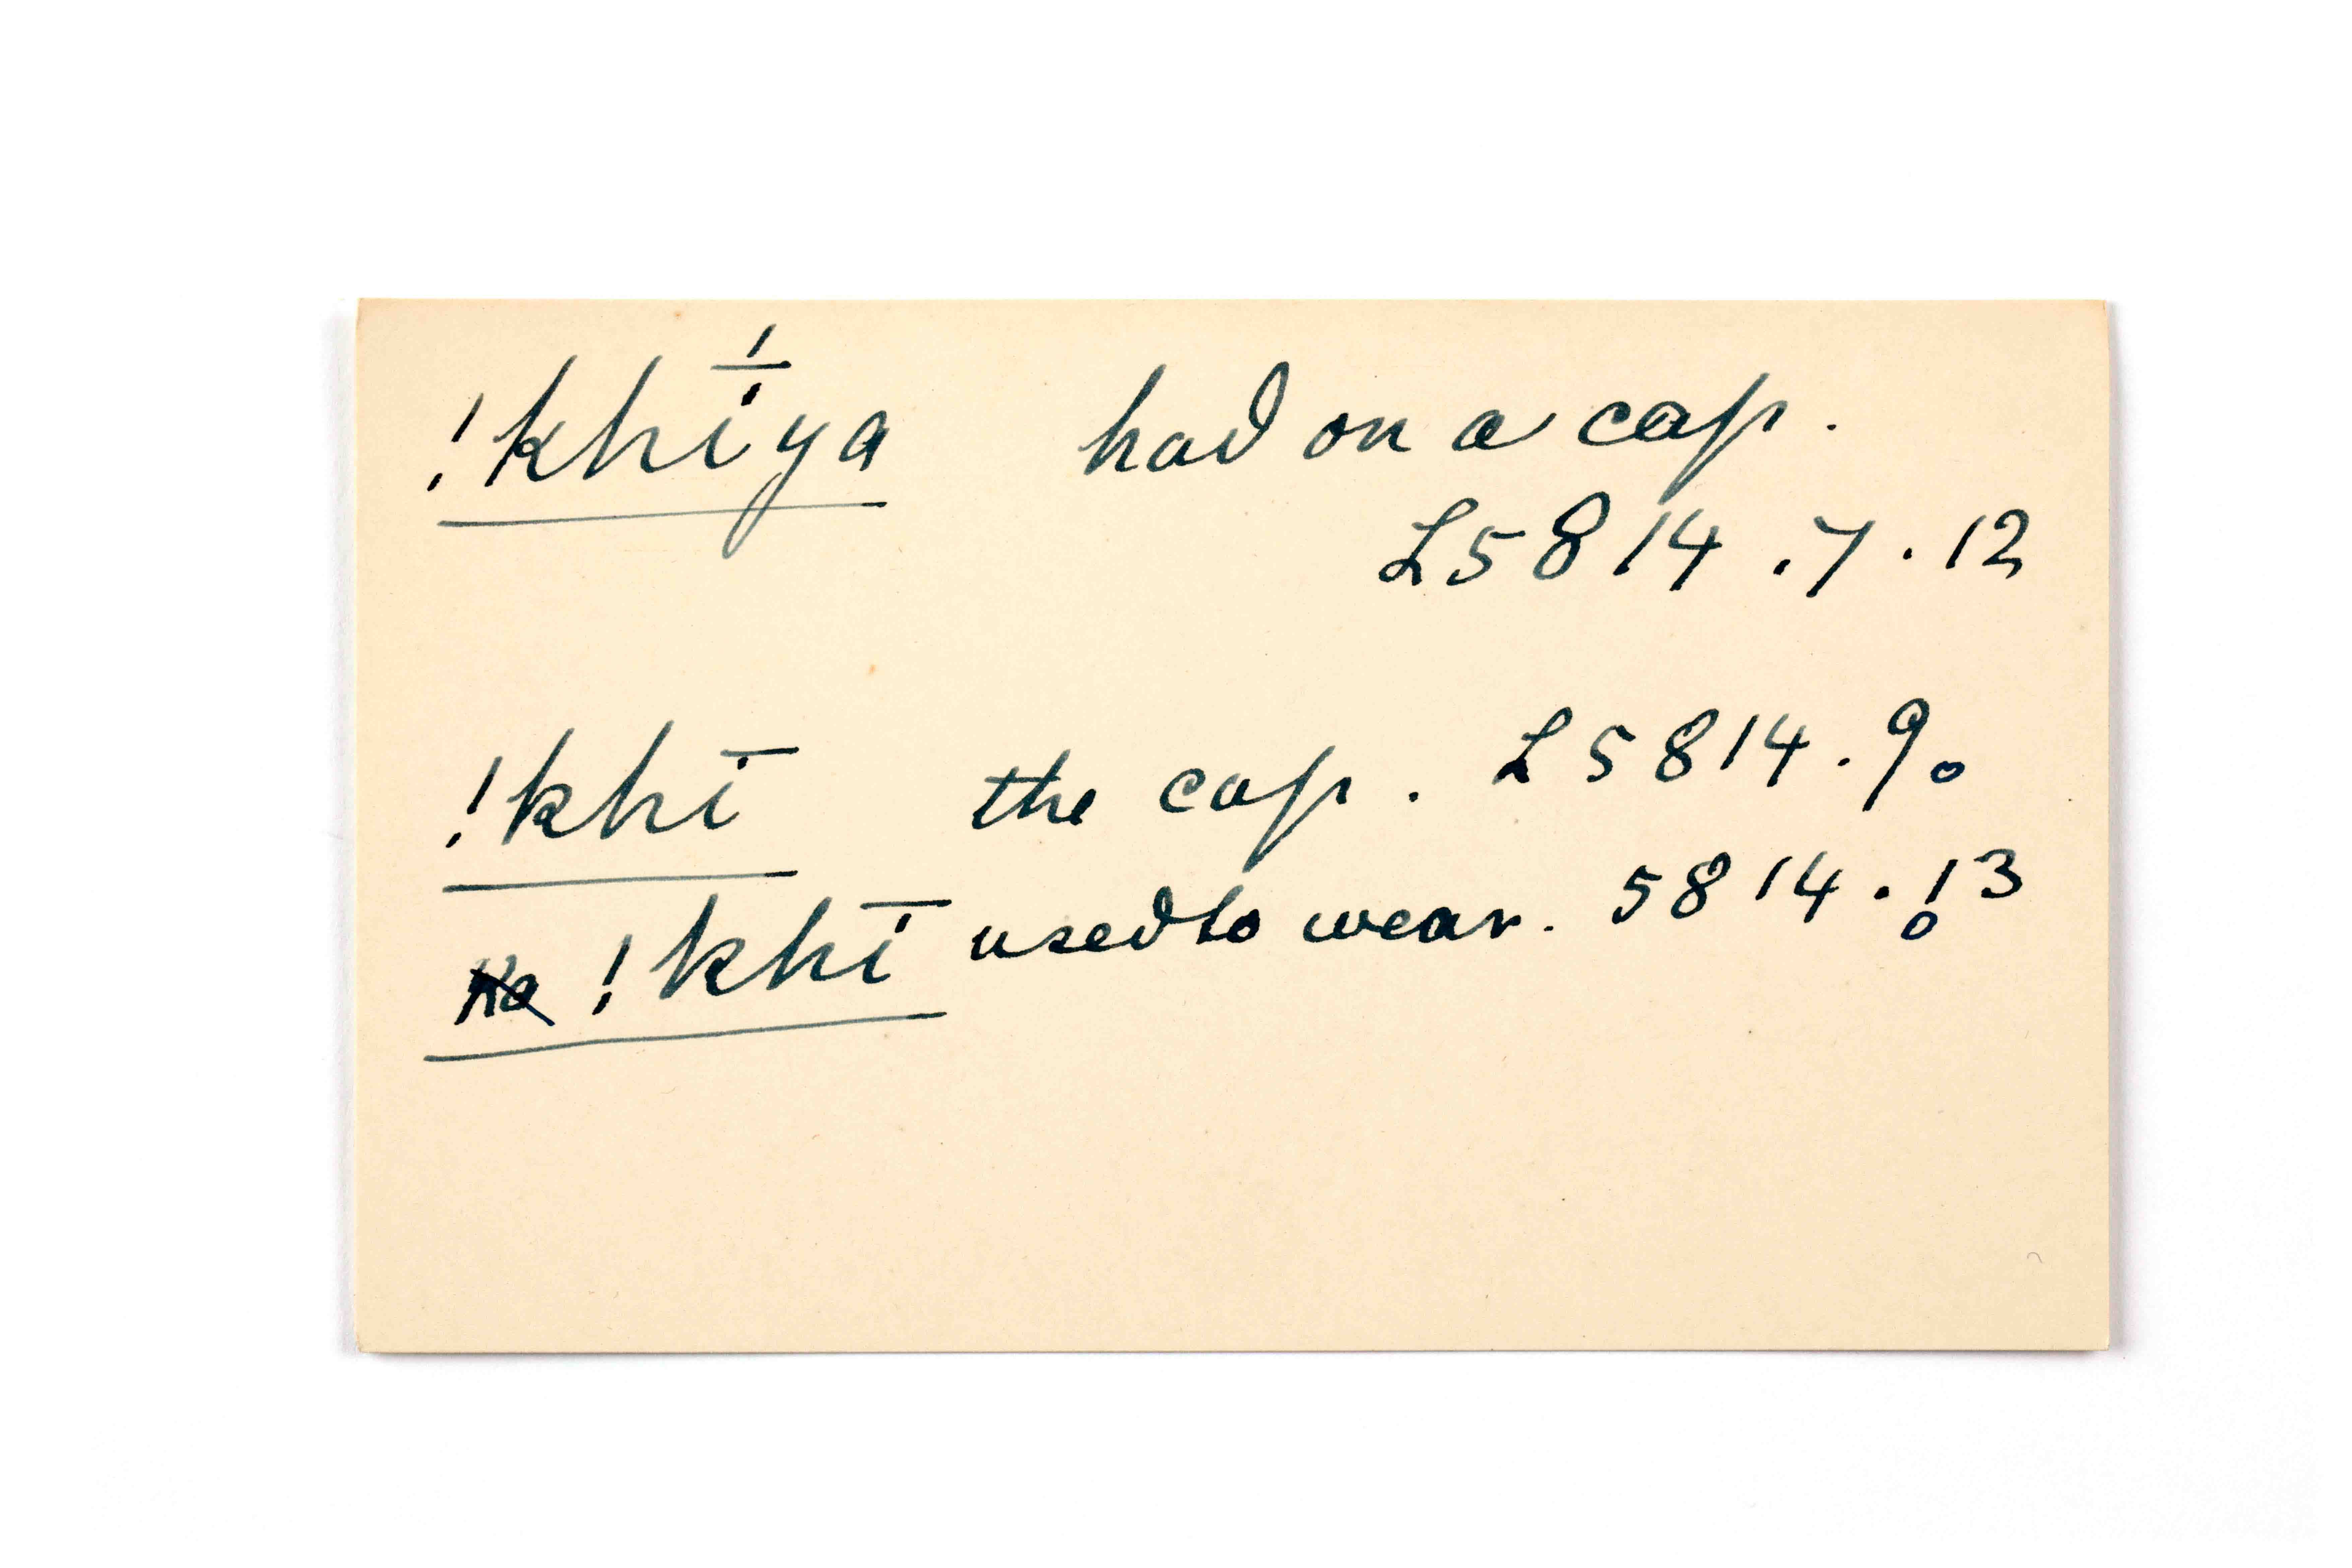 !khī́ya had on a cap.
L5814.7.12
!khī the cap. L5814.9o
Ka !khī used to wear. 5814.13
o